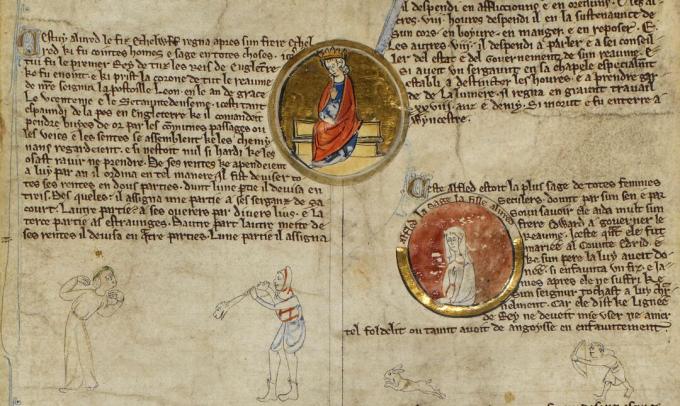 Cestuy alured le fiz Ethelwlff regna apres sun frere Ethel
red ki fu countes homes e sage en totes choses. icel
tui fu le premer Rey de tuz les reis de Engletere
ke fu enoint. e ki prist la corone de tut le reaume
de nre seignur la postoille Leon. en le an de grace
Le e le icesti tant
de la pees en Engleterre ke il comandeit
pendre buyes de or par les comunes passages ou
les veies e les sentes se assemblent ke les chemy
nans regardeient. e si nestoit nul si hardi ke les
osast ravir ne prendre. De ses rentes ke apendeient
a luy par an il ordina en tel manere. Il fist deviser to
tes ses rentes en dous parties. dunt lune ptie il devisa en
treis. Des queles. il assigna une partie a ses serganz de sa
court. Lautre partie. a ses overers par divers lius. e La
terce partie as estraunges. Dautre part lautre meite de
ses rentes il devisa en parties. Lune partie il assigna
il despendi en affliccions e en oreisuns. E les al
tres .viii. houres despendi il en la sustenaunce de
sun cors. en boyvre. en manger. e en reposer. E
Les autres .viii. il despendi a parler e a sei consel
ler del estat e del Governement de sun reaume. E
si aveit un sergaunt en la chapele especiaument
establi a destincter les houres. e a prendre gar
de de La lumere. Si regna en graunt travail
xxviii. anz e demy. Si morut e fu enterre a
Wyncestre.
alfled la sage la fille alured
Ceste alfled estoit la plus sage de totes femmes
seculers. dount par sun sen e par
soun savoir ele aida mult sun
frere Edward a gouverner le
reaume. quant ele fut
mariee al Counte
ke sun pere la luy aveit do
nee. si enfaunta un fiz. e la
mes apres ele ne suffri ke
sun seignur tochast a luy chr
nelment. Car ele dist ke Lignee
de Rey ne deveit mie user ne amer
tel foldelit ou taunt avoit de angoysse en enfauntement.